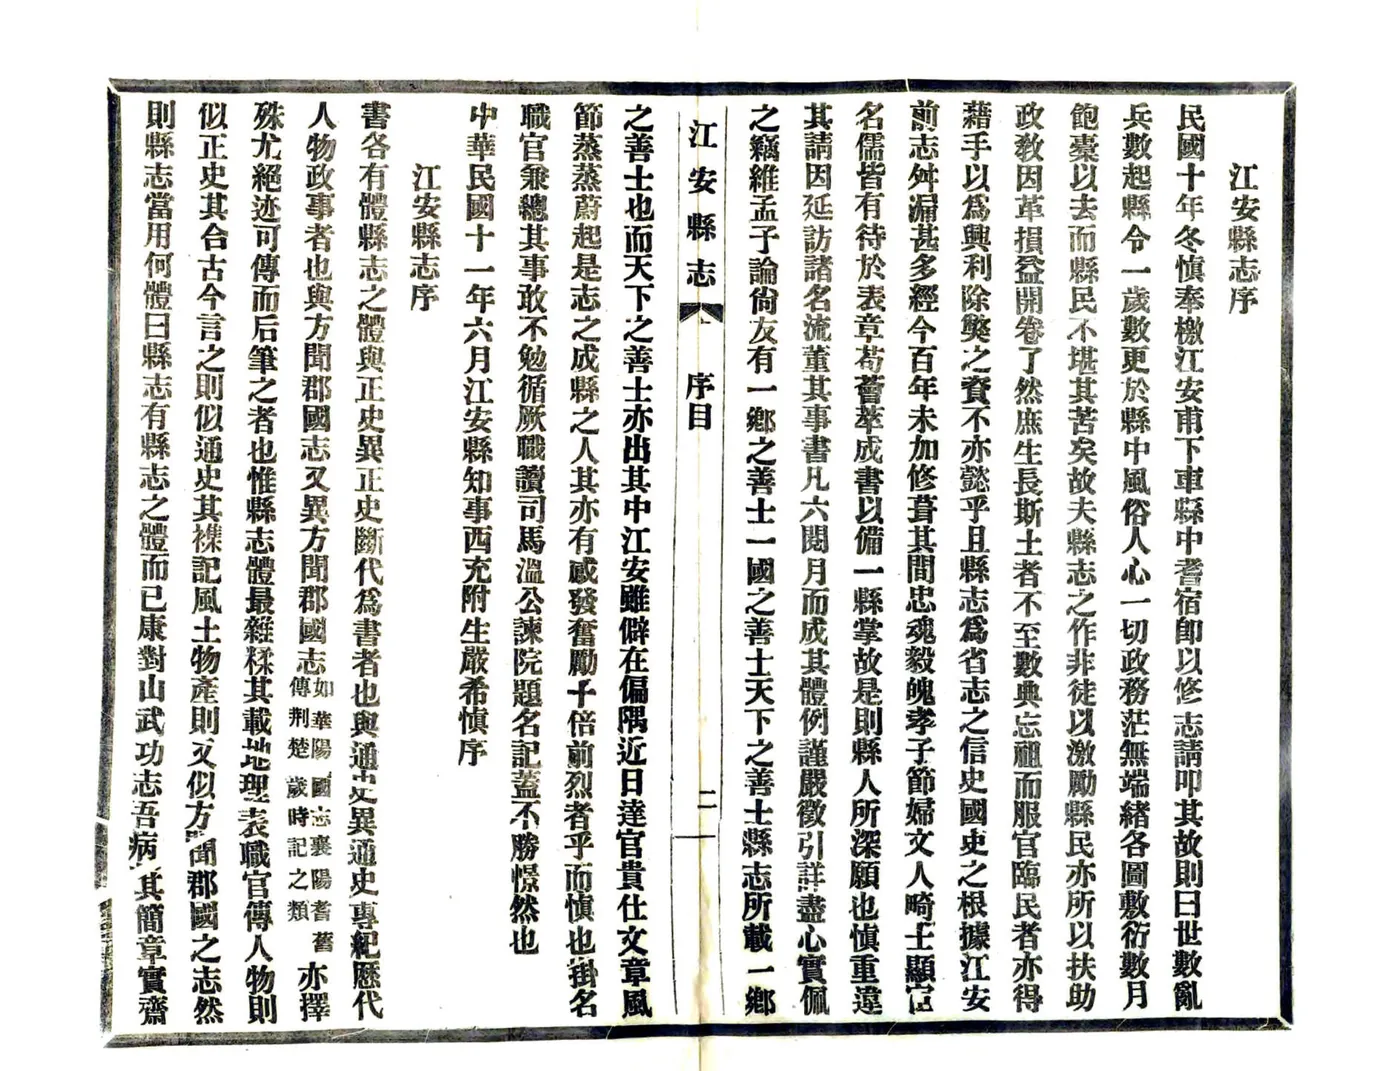 江安縣志序
民國十年冬慎奉檄江安甫下車縣中耆宿卽以修志請叩其故則曰世數亂
兵數起縣令一歲數更於縣中風俗人心一切政務茫無端緒各圖敷衍數月
飽橐以去而縣民不堪其苦矣故夫縣志之作非徒以激勵縣民亦所以扶助
政敎因革損益開卷了然庶生長斯土者不至數典忘祖而服官臨民者亦得
藉手以爲興利除獘之資不亦懿乎且縣志爲省志之信史國史之根據江安
前志舛漏甚多經今百年未加修葺其間忠魂毅魄孝子節婦文人畸士顯宦
名儒皆有待於表章苟薈萃成書以備一縣掌故是則縣人所深願也慎重違
其請因延訪諸名流董其事書凡六閱月而成其體例謹嚴徵引詳盡心實佩
之竊維孟子論尙友有一鄕之善士一國之善士天下之善士縣志所載一鄕
江安縣志 上 序目 二
之善士也而天下之善士亦出其中江安雖僻在偏隅近日達官貴仕文章風
節蒸蒸蔚起是志之成縣之人其亦有感發奮勵千倍前烈者乎而慎也掛名
職官兼總其事敢不勉循厥職讀司馬溫公諫院題名記蓋不勝憬然也
中華民國十一年六月江安縣知事西充附生嚴希慎序
江安縣志序
書各有體縣志之體與正史異正史斷代爲書者也與通史異通史專紀歷代
人物政事者也與方聞郡國志又異方聞郡國志如華陽國志襄陽耆舊傳荆楚歲時記之類亦擇
殊尤絕迹可傳而后筆之者也惟縣志體最雜糅其載地理表職官傳人物則
似正史其合古今言之則似通史其襍記風土物產則又似方聞郡國之志然
則縣志當用何體曰縣志有縣志之體而已康對山武功志吾病其簡章實齋